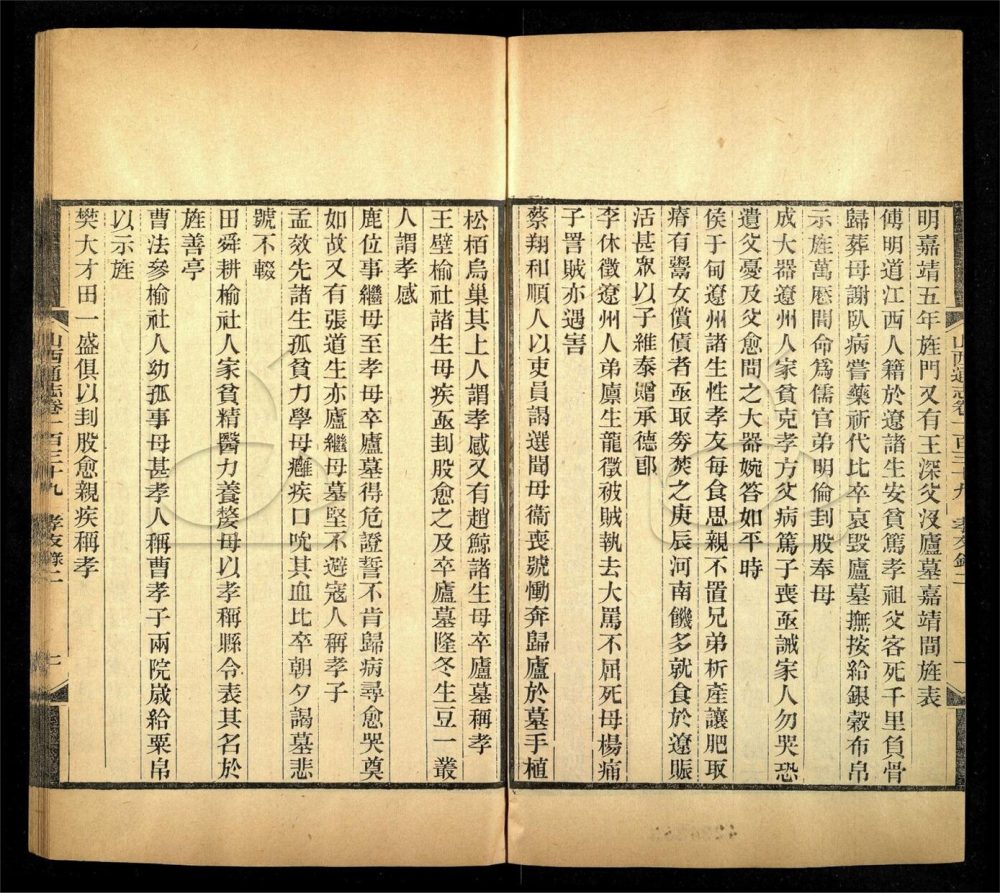 明嘉靖五年旌門又有王深父沒廬墓嘉靖間旌表
傅明道江西人籍於遼諸生安貧篤孝祖父客死千里負骨
歸葬母謝臥病嘗藥祈代比卒哀毀廬墓撫按給銀穀布帛
示旌萬厯間命爲儒官弟明倫刲股奉母
成大器遼州人家貧克孝方父病篤子喪亟誡家人勿哭恐
遺父憂及父愈問之大器婉答如平時
侯于甸遼州諸生性孝友每食思親不置兄弟析產讓肥取
瘠有鬻女償債者亟取券焚之庚辰河南饑多就食於遼賑
活甚眾以子維泰贈承德郎
李休徵遼州人弟廩生龍徵被賊執去大罵不屈死母楊痛
子詈賊亦遇害
蔡翔和順人以吏員謁選聞母衞喪號慟奔歸廬於墓手植
山西通志卷一百三十九 孝友錄二 一
松栢烏巢其上人謂孝感又有趙鯨諸生母卒廬墓稱孝
王壁榆社諸生母疾亟刲股愈之及卒廬墓隆冬生豆一叢
人謂孝感
鹿位事繼母至孝母卒廬墓得危證誓不肯歸病尋愈哭奠
如故又有張道生亦廬繼母墓堅不避寇人稱孝子
孟效先諸生孤貧力學母癰疾口吮其血比卒朝夕謁墓悲
號不輟
田舜耕榆社人家貧精醫力養嫠母以孝稱縣令表其名於
旌善亭
曹法參榆社人幼孤事母甚孝人稱曹孝子兩院歲給粟帛
以示旌
樊大才田一盛俱以刲股愈親疾稱孝
山西通志卷一百三十九 孝友錄二 二